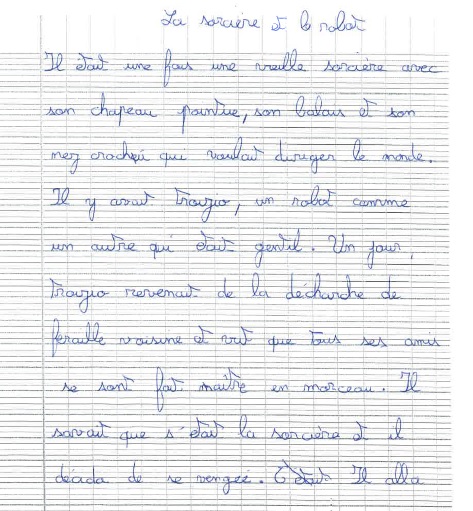 La sorcière et le robot
Il était une fois une vieille sorcière avec
son chapeau pointue, son balais et son
nez crochu qui voulait diriger le monde.
Il y avait Trouzio, un robot comme
un autre qui était gentil. Un jour,
Trouzio revenait de la décharche de
feraille voisine et vit que tous ses amis
se sont fait maître en morceau. Il
savait que s'était la sorcière et il
décida de se vengée. C'était Il alla